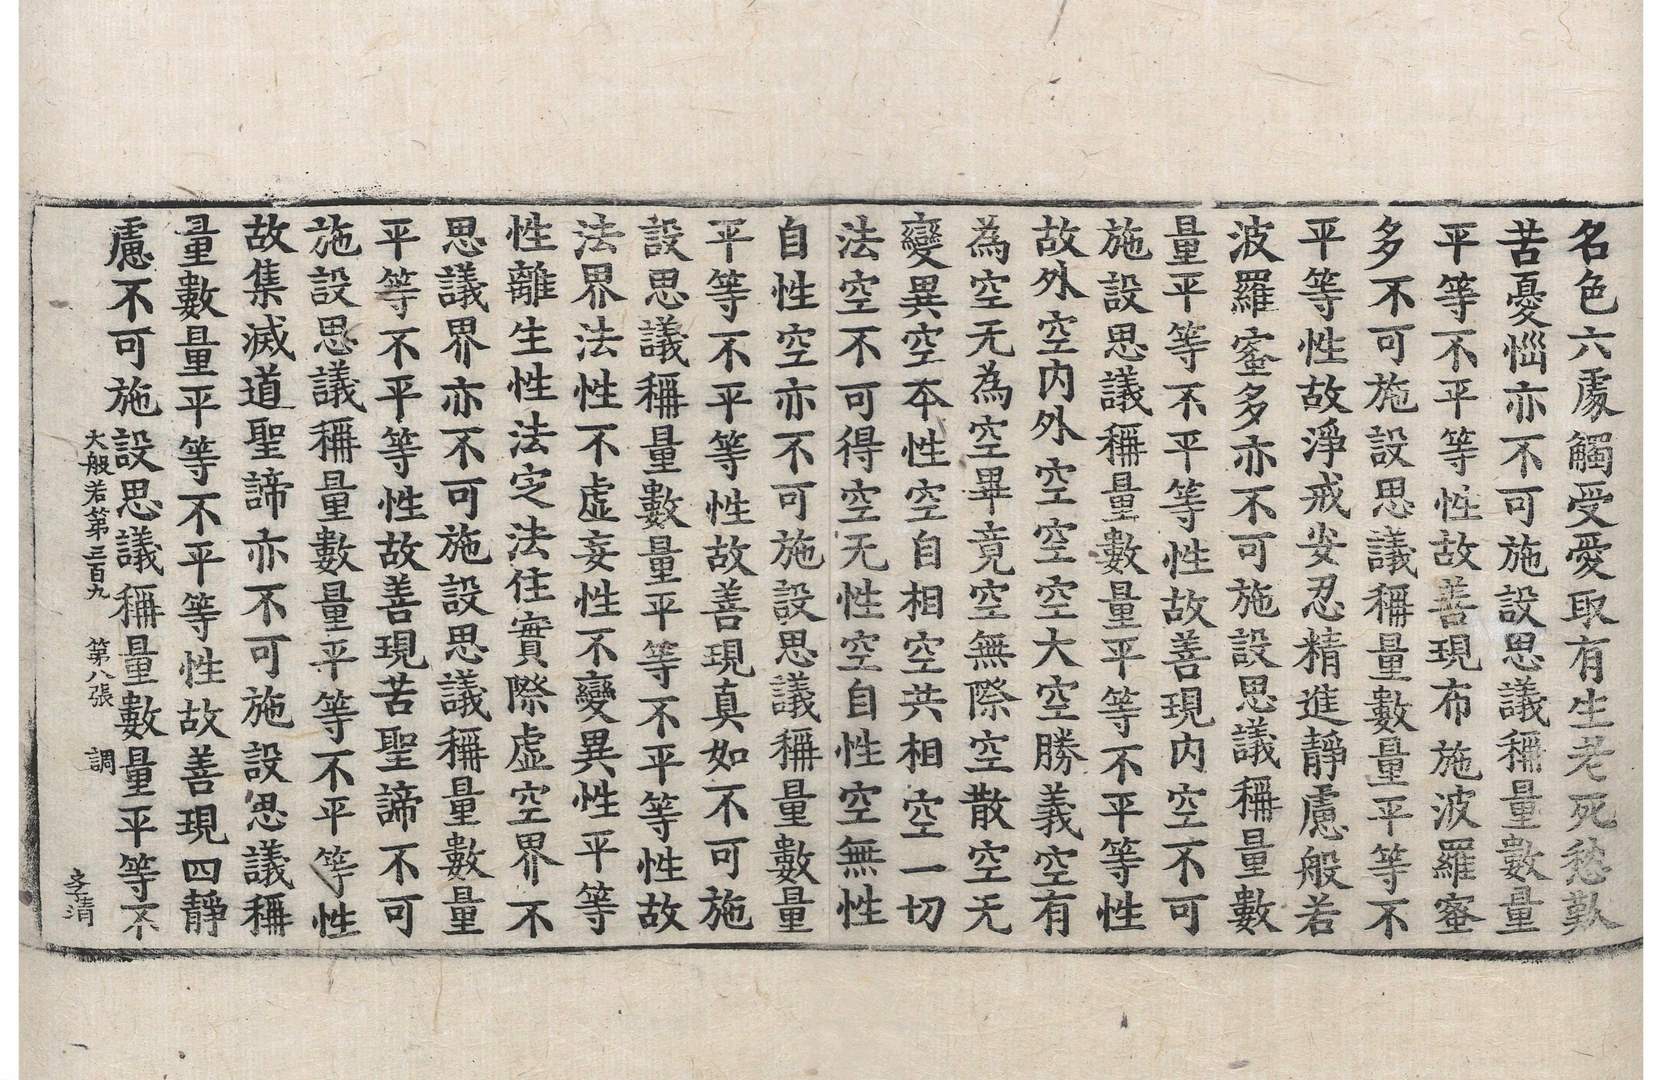 名色六處觸受愛取有生老死愁歎
苦憂惱亦不可施設思議稱量數量
平等不平等性故善現布施波羅蜜
多不可施設思議稱量數量平等不
平等性故淨戒安忍精進靜慮般若
波羅蜜多亦不可施設思議稱量數
量平等不平等性故善現内空不可
施設思議稱量數量平等不平等性
故外空内外空空空大空勝義空有
為空无為空畢竟空無際空散空无
變異空本性空自相空共相空一切
法空不可得空无性空自性空無性
自性空亦不可施設思議稱量數量
平等不平等性故善現真如不可施
設思議稱量數量平等不平等性故
法界法性不虛妄性不變異性平等
性離生性法定法住實際虛空界不
思議界亦不可施設思議稱量數量
平等不平等性故善現苦聖諦不可
施設思議稱量數量平等不平等性
故集滅道聖諦亦不可施設思議稱
量數量平等不平等性故善現四靜
慮不可施設思議稱量數量平等不
大般若第三百九 第八張 調 孝清